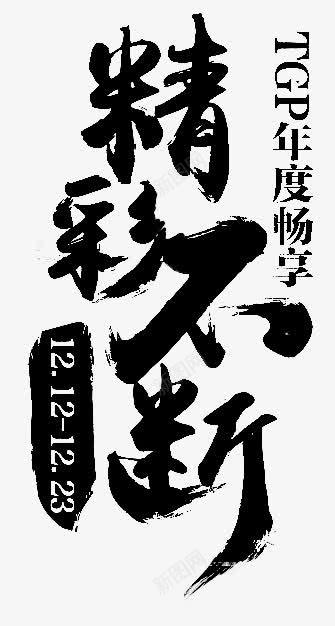 TGP年度畅享
精彩不断
12.12-12.23